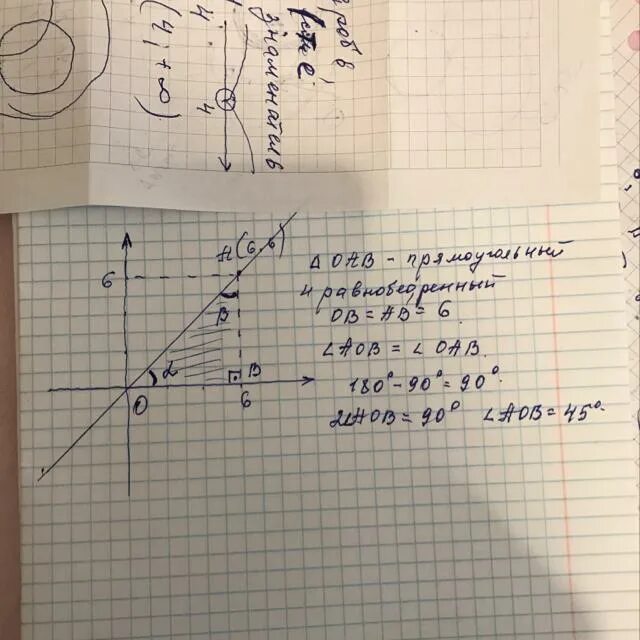 гроб в,
знаменатель
4
4
(4;+∞)
A(6 6)
6
B
α
B
O
6
△OAB - прямоугольный
и равнобедренный
OB = AB = 6
∠AOB = ∠OAB.
180° - 90° = 90°.
2∠AOB = 90° ∠AOB = 45°.